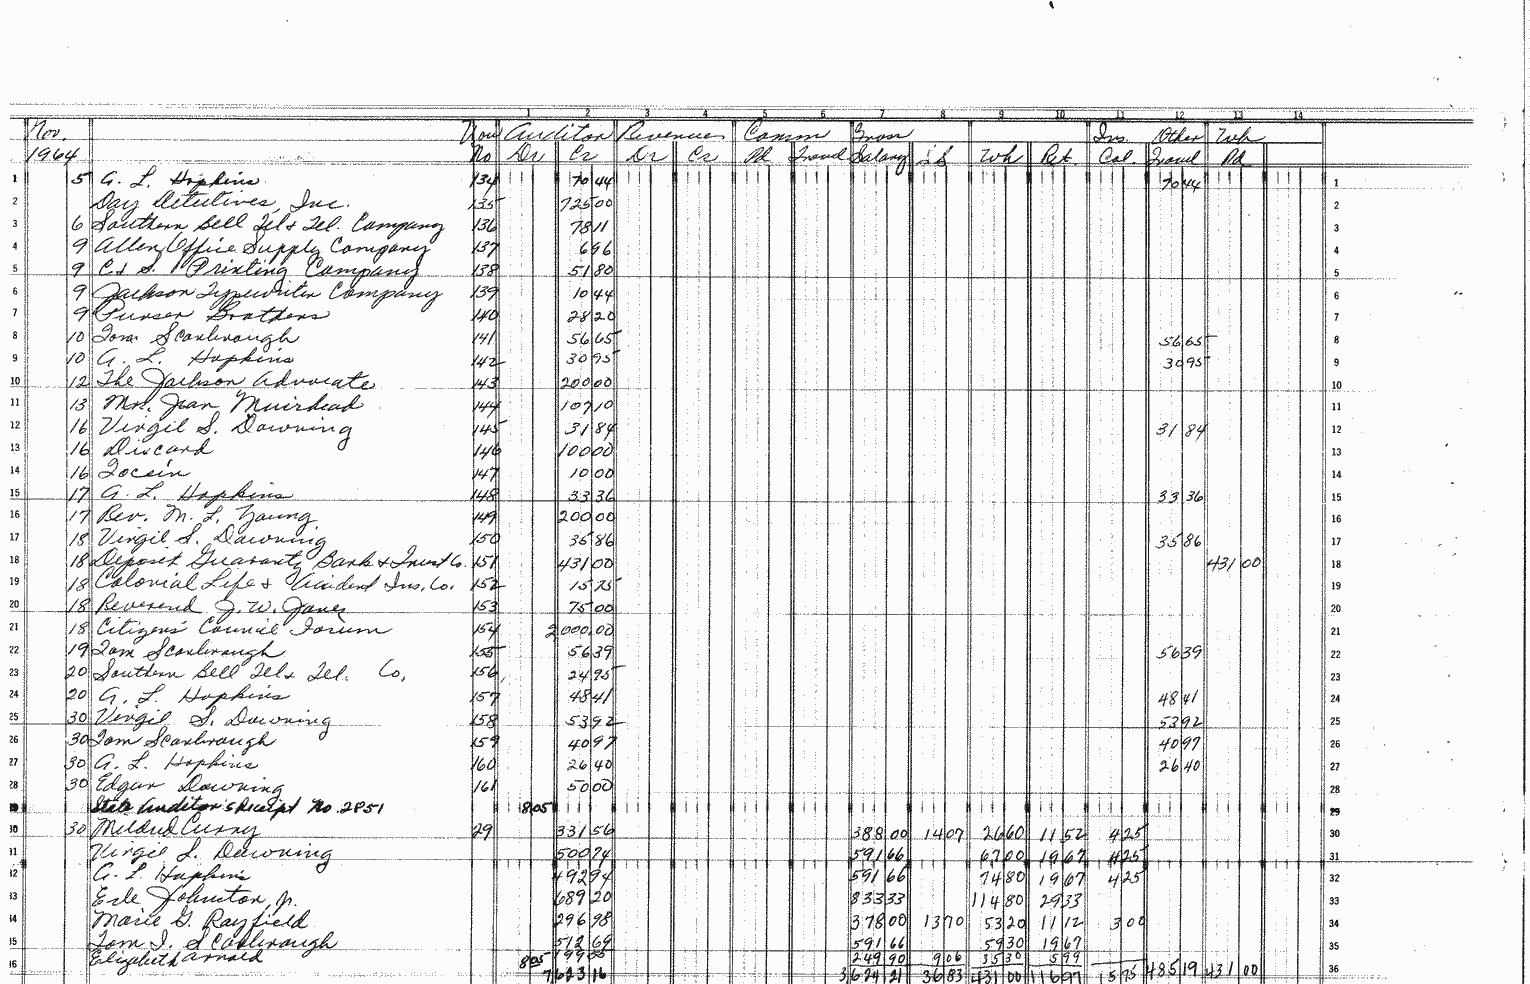 1 2 3 4 5 6 7 8 9 10 11 12 13 14
Nov. Vou Auditor Revenues Comm Gross Ins. Other Wh
1964 No Dr Cr Dr Cr Pd Travel Salary SS Wh Ret. Col. Travel Pd
1 5 A. L. Hopkins 134 70 44 70 44 1
2 Day Detectives, Inc. 135 725 00 2
3 6 Southern Bell Tel & Tel. Company 136 78 11 3
4 9 Allen Office Supply Company 137 6 96 4
5 9 C & S. Printing Company 138 51 80 5
6 9 Jackson Typewriter Company 139 10 44 6
7 9 Purser Brothers 140 28 20 7
8 10 Tom Scarbrough 141 56 65 56 65 8
9 10 A. L. Hopkins 142 30 95 30 95 9
10 12 The Jackson Advocate 143 200 00 10
11 13 Mrs. Jean Muirhead 144 107 10 11
12 16 Virgil S. Downing 145 31 84 31 84 12
13 16 Discard 146 100 00 13
14 16 Tocsin 147 10 00 14
15 17 A. L. Hopkins 148 33 36 33 36 15
16 17 Rev. M. L. Young 149 200 00 16
17 18 Virgil S. Downing 150 35 86 35 86 17
18 18 Deposit Guaranty Bank & Trust Co. 151 431 00 431 00 18
19 18 Colonial Life & Accident Ins. Co. 152 15 75 19
20 18 Reverend J. W. Jones 153 75 00 20
21 18 Citizens' Council Forum 154 2,000.00 21
22 19 Tom Scarbrough 155 56 39 56 39 22
23 20 Southern Bell Tel & Tel. Co. 156 24 95 23
24 20 A. L. Hopkins 157 48 41 48 41 24
25 30 Virgil S. Downing 158 53 92 53 92 25
26 30 Tom Scarbrough 159 40 97 40 97 26
27 30 A. L. Hopkins 160 26 40 26 40 27
28 30 Edgar Downing 161 50 00 28
29 State Auditor's Receipt No. 2851 8 05 29
30 30 Mildred Curry 29 331 56 388 00 14 07 26 60 11 52 4 25 30
31 Virgil S. Downing 500 74 591 66 67 00 19 67 4 25 31
32 A. L. Hopkins 492 94 591 66 74 80 19 67 4 25 32
33 Erle Johnston, Jr. 689 20 833 33 114 80 29 33 33
34 Marie G. Rayfield 296 98 378 00 13 70 53 20 11 12 3 00 34
35 Tom I. Scarbrough 512 69 591 66 59 30 19 67 35
36 Elizabeth Arnold 199 05 249 90 9 06 35 30 5 99
8 05 7 623 16 3 624 21 36 83 431 00 116 97 15 75 485 19 431 00 36